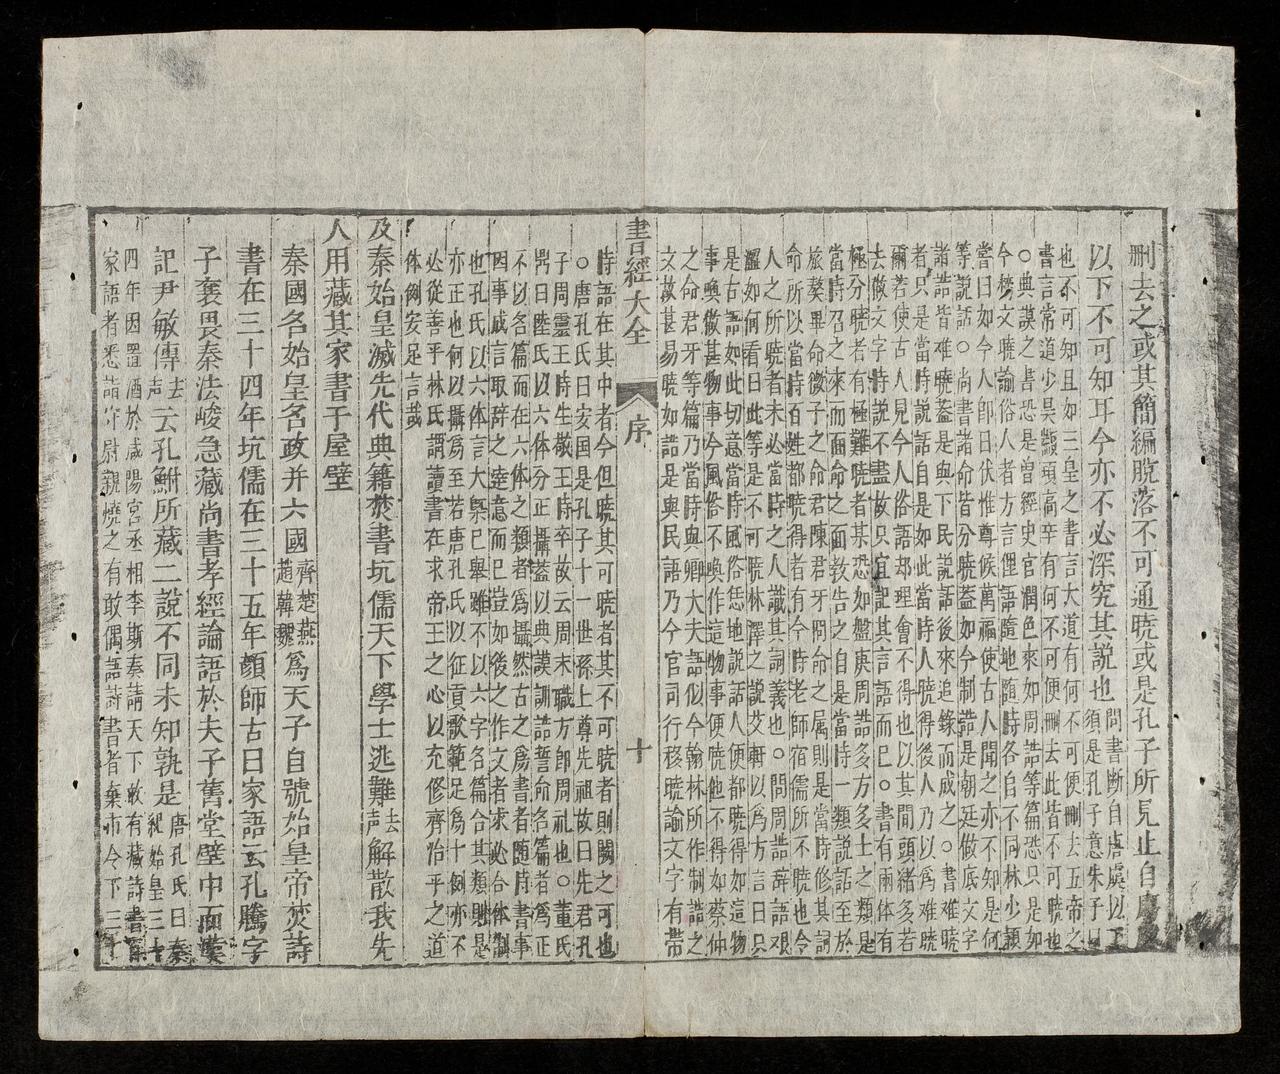 刪去之或其簡編脫落不可通曉或是孔子所見止自唐虞
以下不可知耳今亦不必深究其說也
問書斷自唐虞以下
須是孔子意朱子曰
也不可知且如三皇之書言大道有何不可便刪去五帝之
書言常道少昊顓頊高辛有何不可便刪去此皆不可曉也
○典謨之書恐是曽經史官潤色來如周誥等篇恐只是如
今榜文曉諭俗人者方言俚語隨地隨時各自不同林少頴
嘗曰如今人即日伏惟尊候萬福使古人聞之亦不知是何
等說話○尚書諸命皆分曉蓋如今制誥是朝廷做底文字
諸誥皆难曉蓋是與下民說話後來追錄而成之○書难曉
者只是當時說話自是如此當時人曉得後人乃以為难曉
爾若使古人見今人俗語却理會不得也以其間頭緒多若
去做文字時說不盡故只宜記其言語而已○書有兩体有
極分曉者有極難曉者某恐如盤庚周誥多方多士之類是
當時召之來而面命之面教告之自是當時一類說話至於
旅獒畢命微子之命君陳君牙冏命之属則是當時修其詞
命所以當時百姓都曉得者有今時老師宿儒所不曉也今
人之所曉者未必當時之人識其詞義也○問周誥辞語艰
澀如何看曰此等是不可曉林澤之說艾軒以為方言曰只
是古語如此切意當時風俗恁地說話人便都曉得如這物
事喚做甚物事今風俗不喚作這物事便曉他不得如蔡仲
之命君牙等篇乃當時與卿大夫語似今翰林所作制誥之
文故甚易曉如誥是與民語乃今官司行移曉諭文字有帶
書經大全
序
十
時語在其中者今但曉其可曉者其不可曉者則闕之可也
○唐孔氏曰安国是孔子十一世孫上尊先祖故曰先君孔
子周靈王時生敬王時卒故云周末職方即周礼也○董氏
鼎曰陸氏以六体分正攝蓋以典謨訓誥誓命名篇者為正
不以名篇而在六体之類者為攝然古之為書者随時書事
因事成言取辞之達意而已豈如後之作文者求必合体制
也孔氏以六体言大槩已舉雖不以六字名篇合其類則是
亦正也何以攝為至若唐孔氏以征貢歌範足為十例亦不
必從善乎林氏謂讀書在求帝王之心以充修齊治平之道
体例安足言哉
及秦始皇滅先代典籍焚書坑儒天下學士逃難
去
声
解散我先
人用藏其家書于屋壁
秦國名始皇名政并六國
齊楚燕
趙韓魏
為天子自號始皇帝焚詩
書在三十四年坑儒在三十五年顔師古曰家語云孔騰字
子襄畏秦法峻急藏尚書孝經論語於夫子舊堂壁中而漢
記尹敏傳
去
声
云孔鮒所藏二說不同未知孰是
唐孔氏曰秦
紀始皇三十
四年因置酒於咸陽宮丞相李斯奏請天下敢有藏詩書百
家語者悉詣守尉親燒之有敢偶語詩書者棄市令下三十